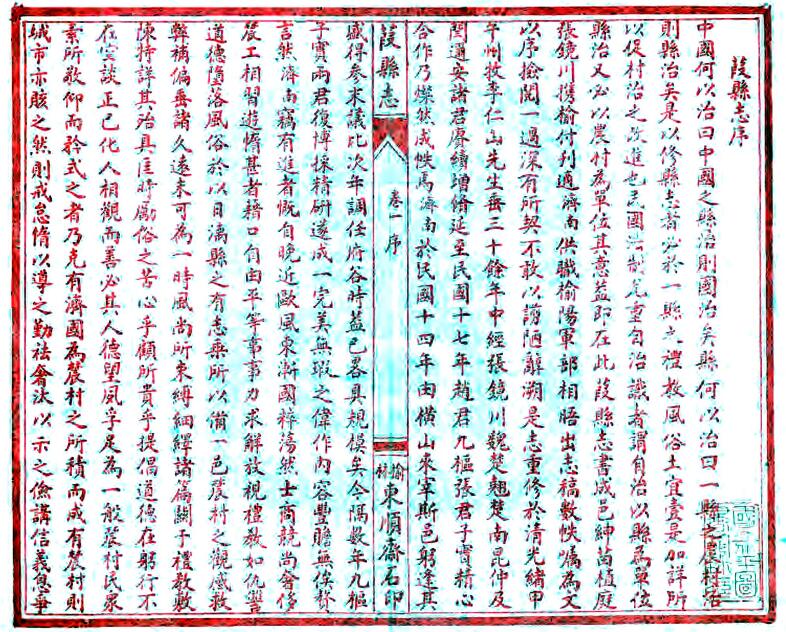 葭縣志序
中國何以治曰中國之縣治則國治矣縣何以治曰一縣之農村治
則縣治矣是以修縣志者必於一縣之禮教風俗土宜臺是加詳所
以促村治之改進也民國法制尤重自治識者謂自治以縣為單位
縣治又必以農村為單位其意蓋即在此葭縣志書成邑紳苗植庭
張鏡川携榆付刋適濟南供職榆陽軍部相晤出志稿數帙囑為文
以序撿閱一過深有所契不敢以謭陋辭溯是志重修於清光緒甲
午州牧李仁山先生垂三十餘年中經張鏡川魏楚翹楚南昆仲及
閆週安諸君賡續增脩延至民國十七年趙君九樞張君子實精心
合作乃燦然成帙焉濟南於民國十四年由橫山來宰斯邑躬逢其
葭縣志
卷一 序
榆林東順齋石印
盛得參末議比次年調任府谷時蓋已畧具規模矣今隔數年九樞
子實兩君復博採精研遂成一完美無瑕之偉作內容豐贍無俟贅
言然濟南竊有進者慨自晚近歐風東漸國粹蕩然士商競尚奢侈
農工相習遊惰甚者藉口自由平等事事力求解放視禮教如仇讐
道德墮落風俗於以日漓縣之有志乘所以備一邑農村之觀感救
弊補偏垂諸久遠未可為一時風尚所束縛紬繹諸篇關于禮教敷
陳特詳其殆具匡時勵俗之苦心乎顧所貴乎提倡道德在躬行不
在空談正己化人相觀而善必其人德望夙孚足為一般農村民眾
素所敬仰而矜式之者乃克有濟國為農村之所積而成有農村則
城市亦賅之然則戒怠惰以導之勤袪奢汰以示之儉講信義息爭